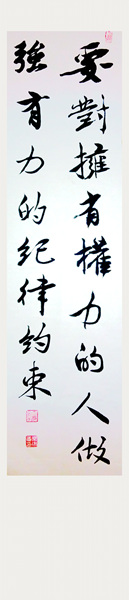 要對擁有權力的人做
強有力的紀律約束